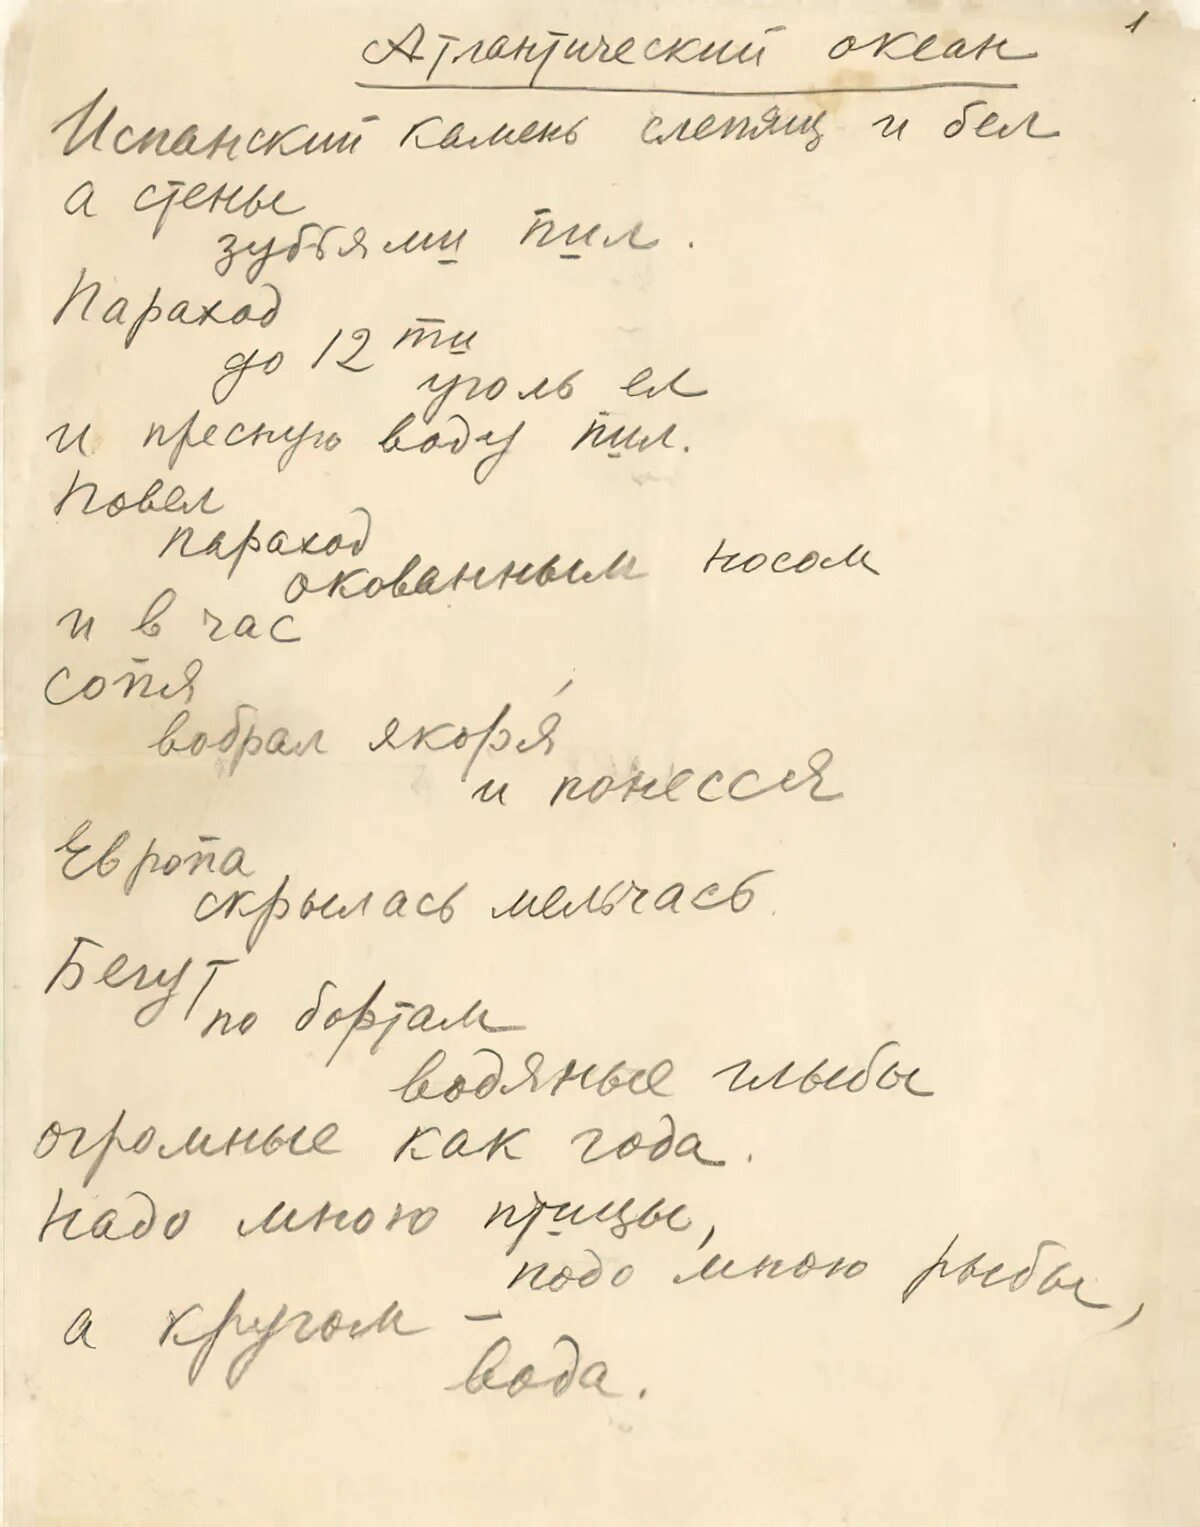 1
Атлантический океан
Испанский камень слепящ и бел
а стены
зубьями пил.
Параход
до 12ти
уголь ел
и пресную воду пил.
Повел
параход
окованным носом
и в час
сопя
вобрал якоря́
и понесся
Европа
скрылась мельчась
Бегут
по бортам
водяные глыбы
огромные как года.
Надо мною птицы,
подо мною рыбы,
а кругом –
вода.